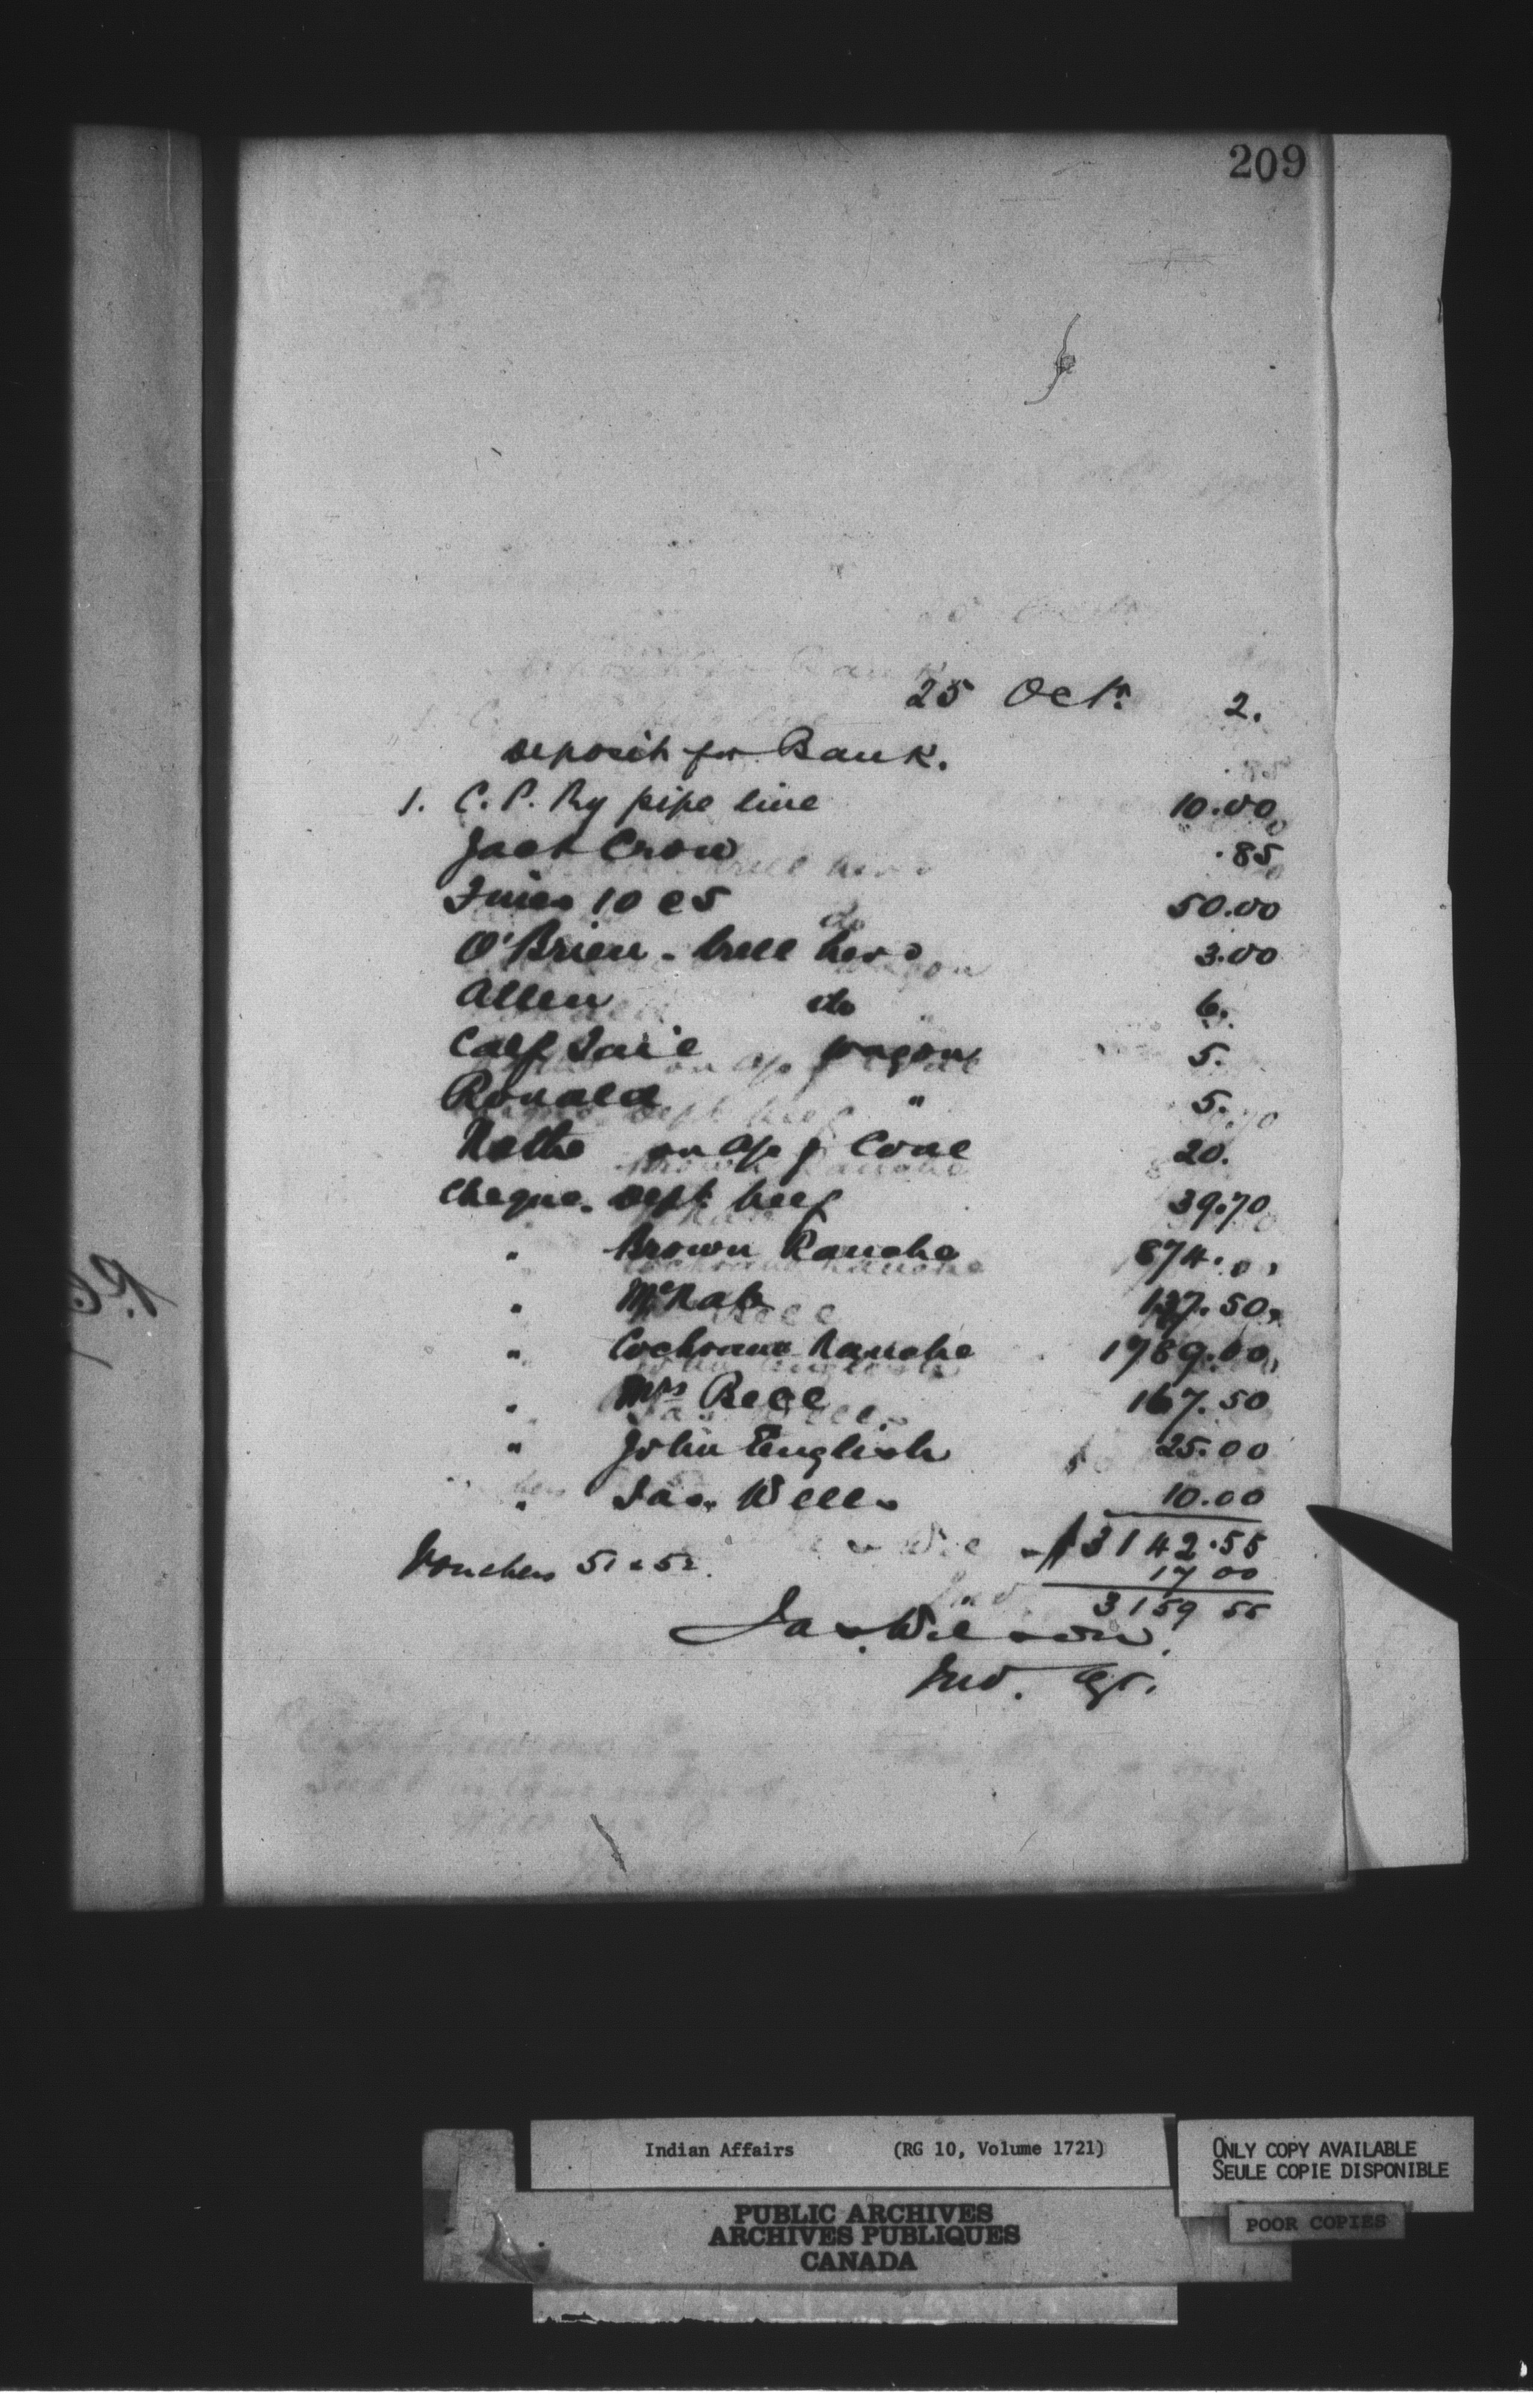 209
25 Oct. 2.
Deposit for Bank.
1. C. P. Ry pipe line 10.00
Jack Crow .85
Fines 10 @ 5 50.00
O'Brien - bull herd 3.00
Allen do 6.
Calf Tail wagon 5.
Ronald " 5.
on a/c of Coal 20.
Cheque. Dept beef 39.70
" Brown Ranche 874.00
" McNab 137.50
" Cochrane Ranche 1789.00
" Mrs Bell 167.50
" John English 25.00
" Jas. Wells 10.00
$3142.55
Vouchers 51 & 52. 17 00
3159 55
Jas. Wilson.
Ind. Agt.
Indian Affairs (RG 10, Volume 1721)
ONLY COPY AVAILABLE
SEULE COPIE DISPONIBLE
PUBLIC ARCHIVES
ARCHIVES PUBLIQUES
CANADA
POOR COPIES